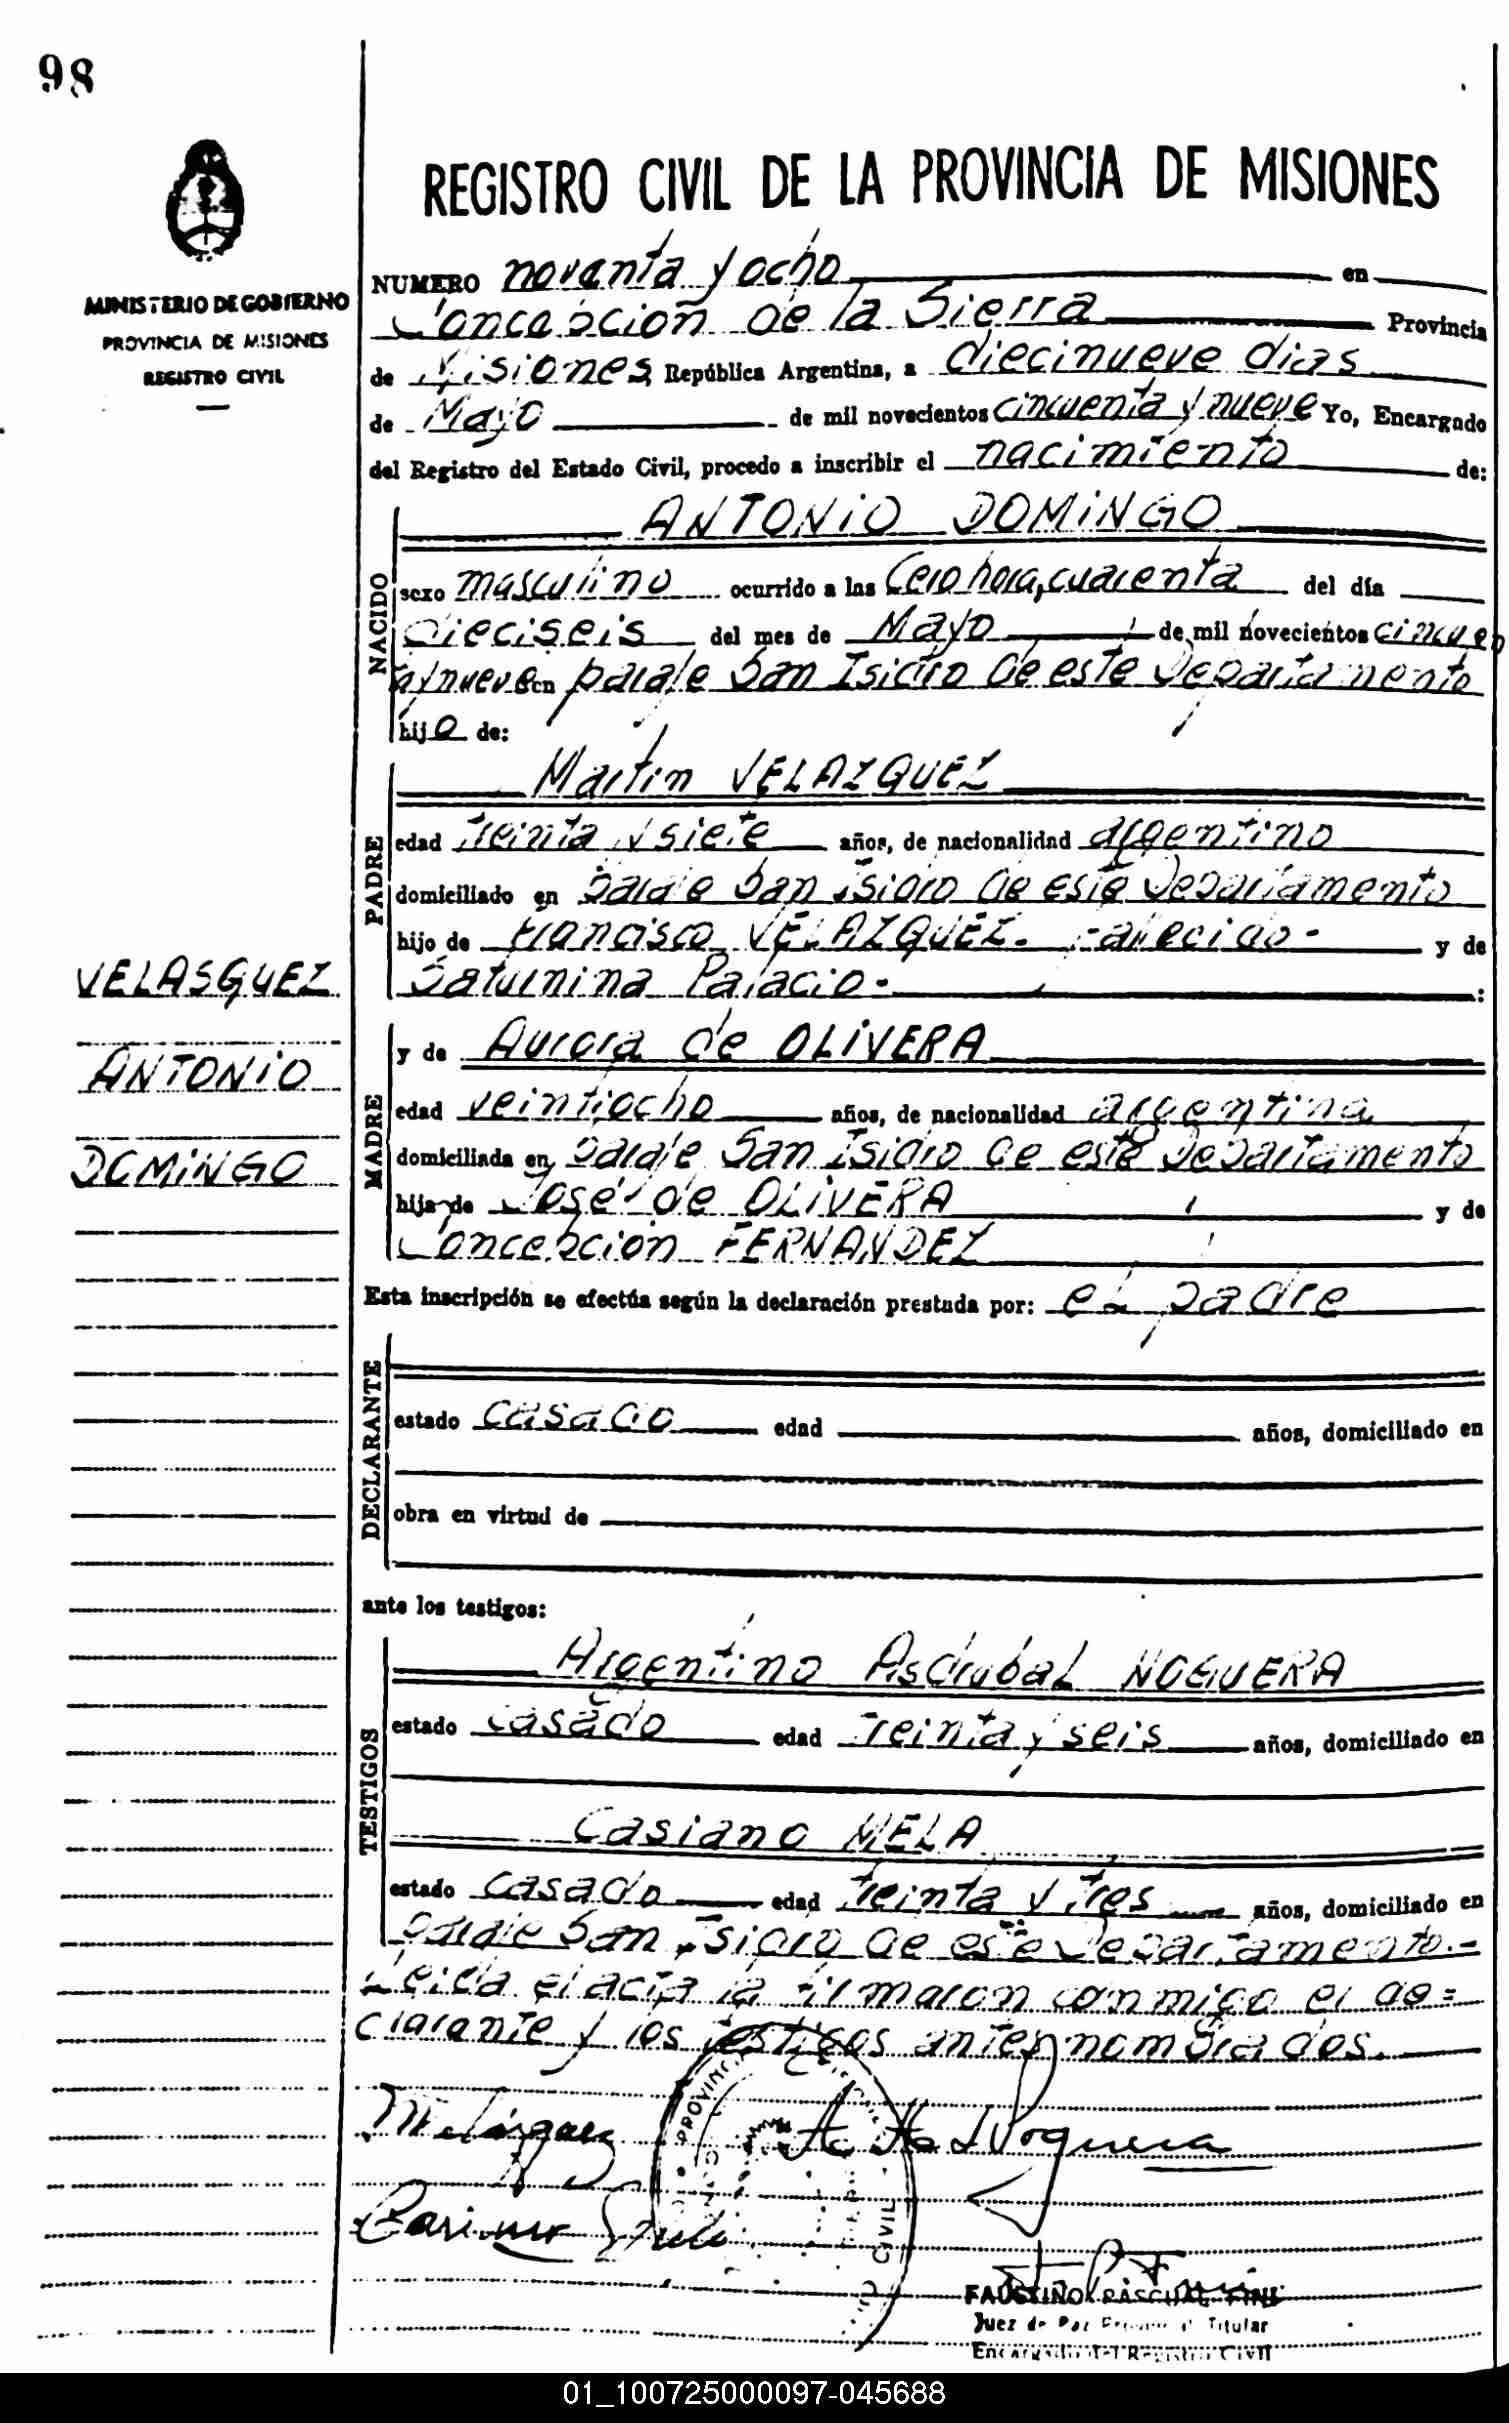 98
REGISTRO CIVIL DE LA PROVINCIA DE MISIONES
MINISTERIO DE GOBIERNO
PROVINCIA DE MISIONES
REGISTRO CIVIL
NUMERO noventa y ocho en
Concepcion de la Sierra Provincia
de Misiones República Argentina, a diecinueve dias
de Mayo de mil novecientos cincuenta y nueve Yo, Encargado
del Registro del Estado Civil, procedo a inscribir el nacimiento de:
ANTONIO DOMINGO
NACIDO
sexo masculino ocurrido a las Cero hora, cuarenta del día
dieciseis del mes de Mayo de mil novecientos cincuen
ta y nueve en paraje San Isidro de este Departamento
hijo de:
Martin VELAZQUEZ
PADRE
edad treinta y siete años, de nacionalidad argentino
domiciliado en paraje San Isidro de este Departamento
hijo de Francisco VELAZQUEZ. -fallecido- y de
Saturnina Palacio.-
VELASQUEZ
ANTONIO
DOMINGO
MADRE
y de Aurora de OLIVERA
edad veintiocho años, de nacionalidad argentina
domiciliada en paraje San Isidro de este Departamento
hija de José de OLIVERA y de
Concepcion FERNANDEZ
Esta inscripción se efectúa según la declaración prestada por: el padre
DECLARANTE
estado casado edad años, domiciliado en
obra en virtud de
ante los testigos:
TESTIGOS
Argentino Asdrubal NOGUERA
estado casado edad treinta y seis años, domiciliado en
Casiano MELA
estado casado edad treinta y tres años, domiciliado en
paraje San Isidro de este Departamento.-
Leida el acta la firmaron conmigo el de=
clarante y los testigos antes nombrados.
PROVINCIA
CIVIL
A. A. Noguera
FAUSTINO PASCUAL FINI
Juez de Paz Titular
Encargado del Registro Civil
01_100725000097-045688